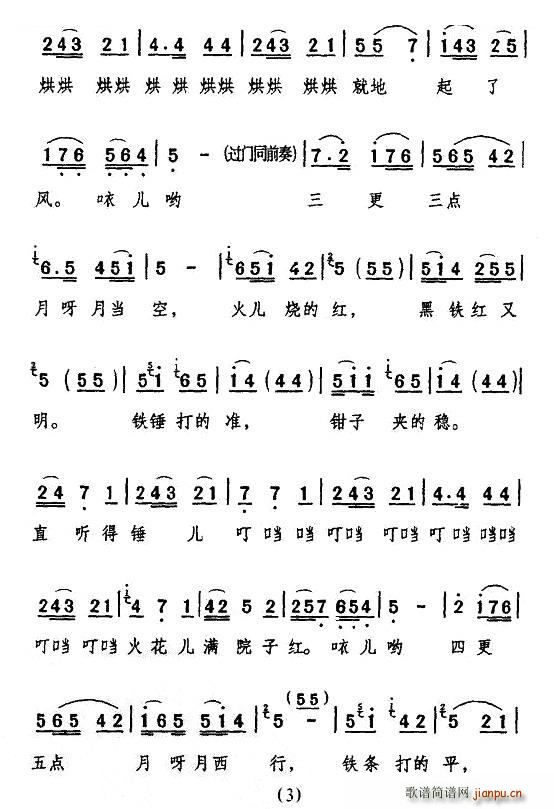 2 4 3 2 1 | 4 . 4 4 4 | 2 4 3 2 1 | 5 5 7 | 1 4 3 2 5 |
烘烘 烘烘 烘 烘 烘烘 烘烘 烘烘 就地 起 了
1 7 6 5 6 4 | 5 - (过门同前奏) | 7 . 2 1 7 6 | 5 6 5 4 2 |
风。 咴 儿 哟 三 更 三点
6 . 5 4 5 1 | 5 - | 6 5 1 4 2 | 5 (5 5) | 5 1 4 2 5 5 |
月呀 月当 空, 火儿 烧的 红, 黑 铁 红 又
5 (5 5) | 5 1 6 5 | 1 4 (4 4) | 5 1 1 6 5 | 1 4 (4 4) |
明。 铁锤 打的 准, 钳子 夹的 稳。
2 4 7 1 | 2 4 3 2 1 | 7 7 1 | 2 4 3 2 1 | 4 . 4 4 4 |
直 听 得 锤 儿 叮 当 当 叮当 叮当 叮当 当当
2 4 3 2 1 | 4 7 1 | 4 2 5 2 | 2 5 7 6 5 4 | 5 - | 2 1 7 6 |
叮当 叮当 火 花 儿 满 院 子 红。 咴 儿 哟 四 更
5 6 5 4 2 | 1 6 5 5 1 4 | 5 (5 5) - | 5 1 4 2 | 5 2 1 |
五点 月 呀 月西 行, 铁条 打的 平,
(3)
歌谱简谱网
jianpu.cn